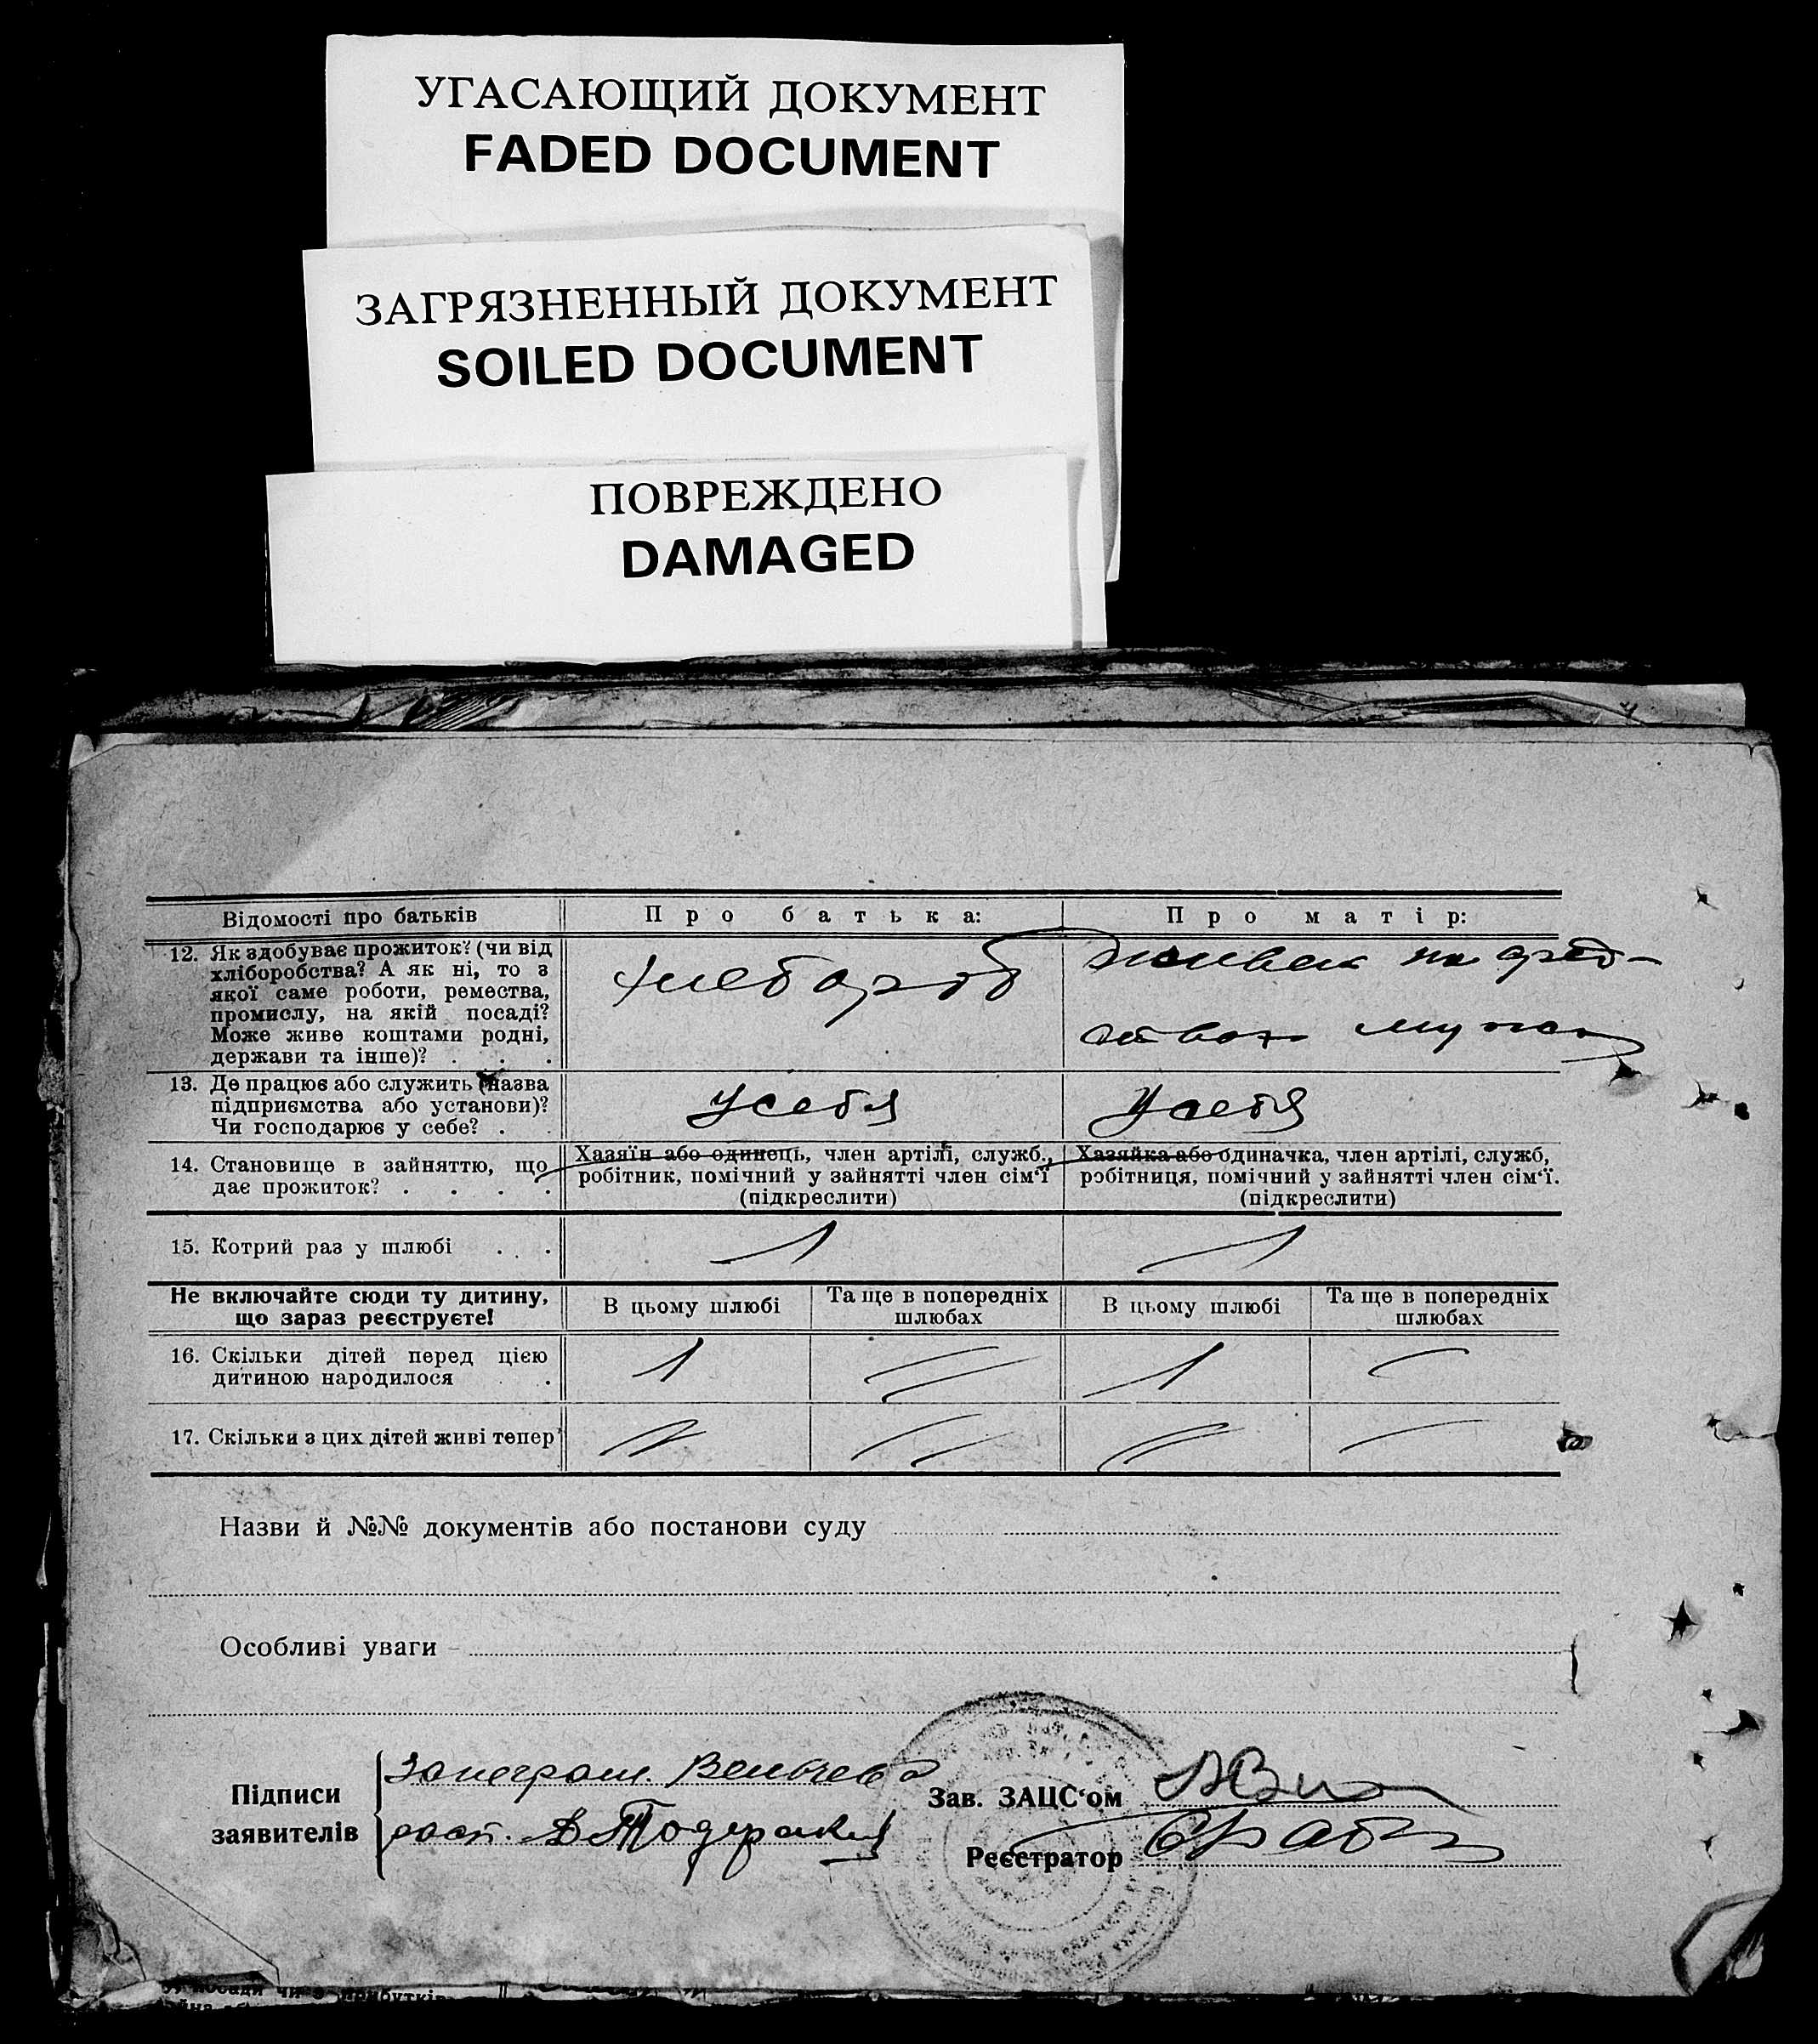 УГАСАЮЩИЙ ДОКУМЕНТ
FADED DOCUMENT
ЗАГРЯЗНЕННЫЙ ДОКУМЕНТ
SOILED DOCUMENT
ПОВРЕЖДЕНО
DAMAGED
Відомості про батьків
Про батька:
Про матір:
12. Як здобуває прожиток? (чи від
хліборобства? А як ні, то з
якої саме роботи, ремества,
промислу, на якій посаді?
Може живе коштами родні,
держави та інше)? . . .
хлебороб
на сред-
ства мужа
13. Де працює або служить (назва
підприємства або установи)?
Чи господарює у себе? . .
у себя
у себя
14. Становище в зайняттю, що
дає прожиток? . . . .
Хазяїн або одинець, член артілі, служб.,
робітник, помічний у зайнятті член сім'ї
(підкреслити)
Хазяйка або одиначка, член артілі, служб,
робітниця, помічний у зайнятті член сім'ї.
(підкреслити)
15. Котрий раз у шлюбі . . .
1
1
Не включайте сюди ту дитину,
що зараз реєструєте!
В цьому шлюбі
Та ще в попередніх
шлюбах
В цьому шлюбі
Та ще в попередніх
шлюбах
16. Скільки дітей перед цією
дитиною народилося . .
1
1
17. Скільки з цих дітей живі тепер
Назви й №№ документів або постанови суду
Особливі уваги
Підписи
заявителів
Зав. ЗАЦС'ом
Реєстратор